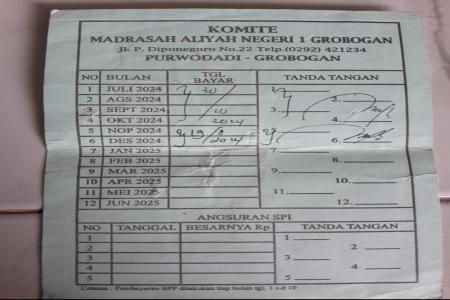 KOMITE
MADRASAH ALIYAH NEGERI 1 GROBOGAN
Jl. P. Diponegoro No.22 Telp.(0292) 421234
PURWODADI - GROBOGAN
NO BULAN TGL. BAYAR TANDA TANGAN
1 JULI 2024 30 1.
2 AGS 2024 2.
3 SEPT 2024 10 3.
4 OKT 2024 2024 4.
5 NOP 2024 19
6 DES 2024 2024 6.
7 JAN 2025 7.
8 FEB 2025 8.
9 MAR 2025 9.
10 APR 2025 10.
11 MEI 2025 11.
12 JUN 2025 12.
ANGSURAN SPI
NO TANGGAL BESARNYA Rp TANDA TANGAN
1 1
2 2
3 3
4 4
5 5
Catatan : Pembayaran SPP dilakukan tiap bulan tgl. 1 s.d 10